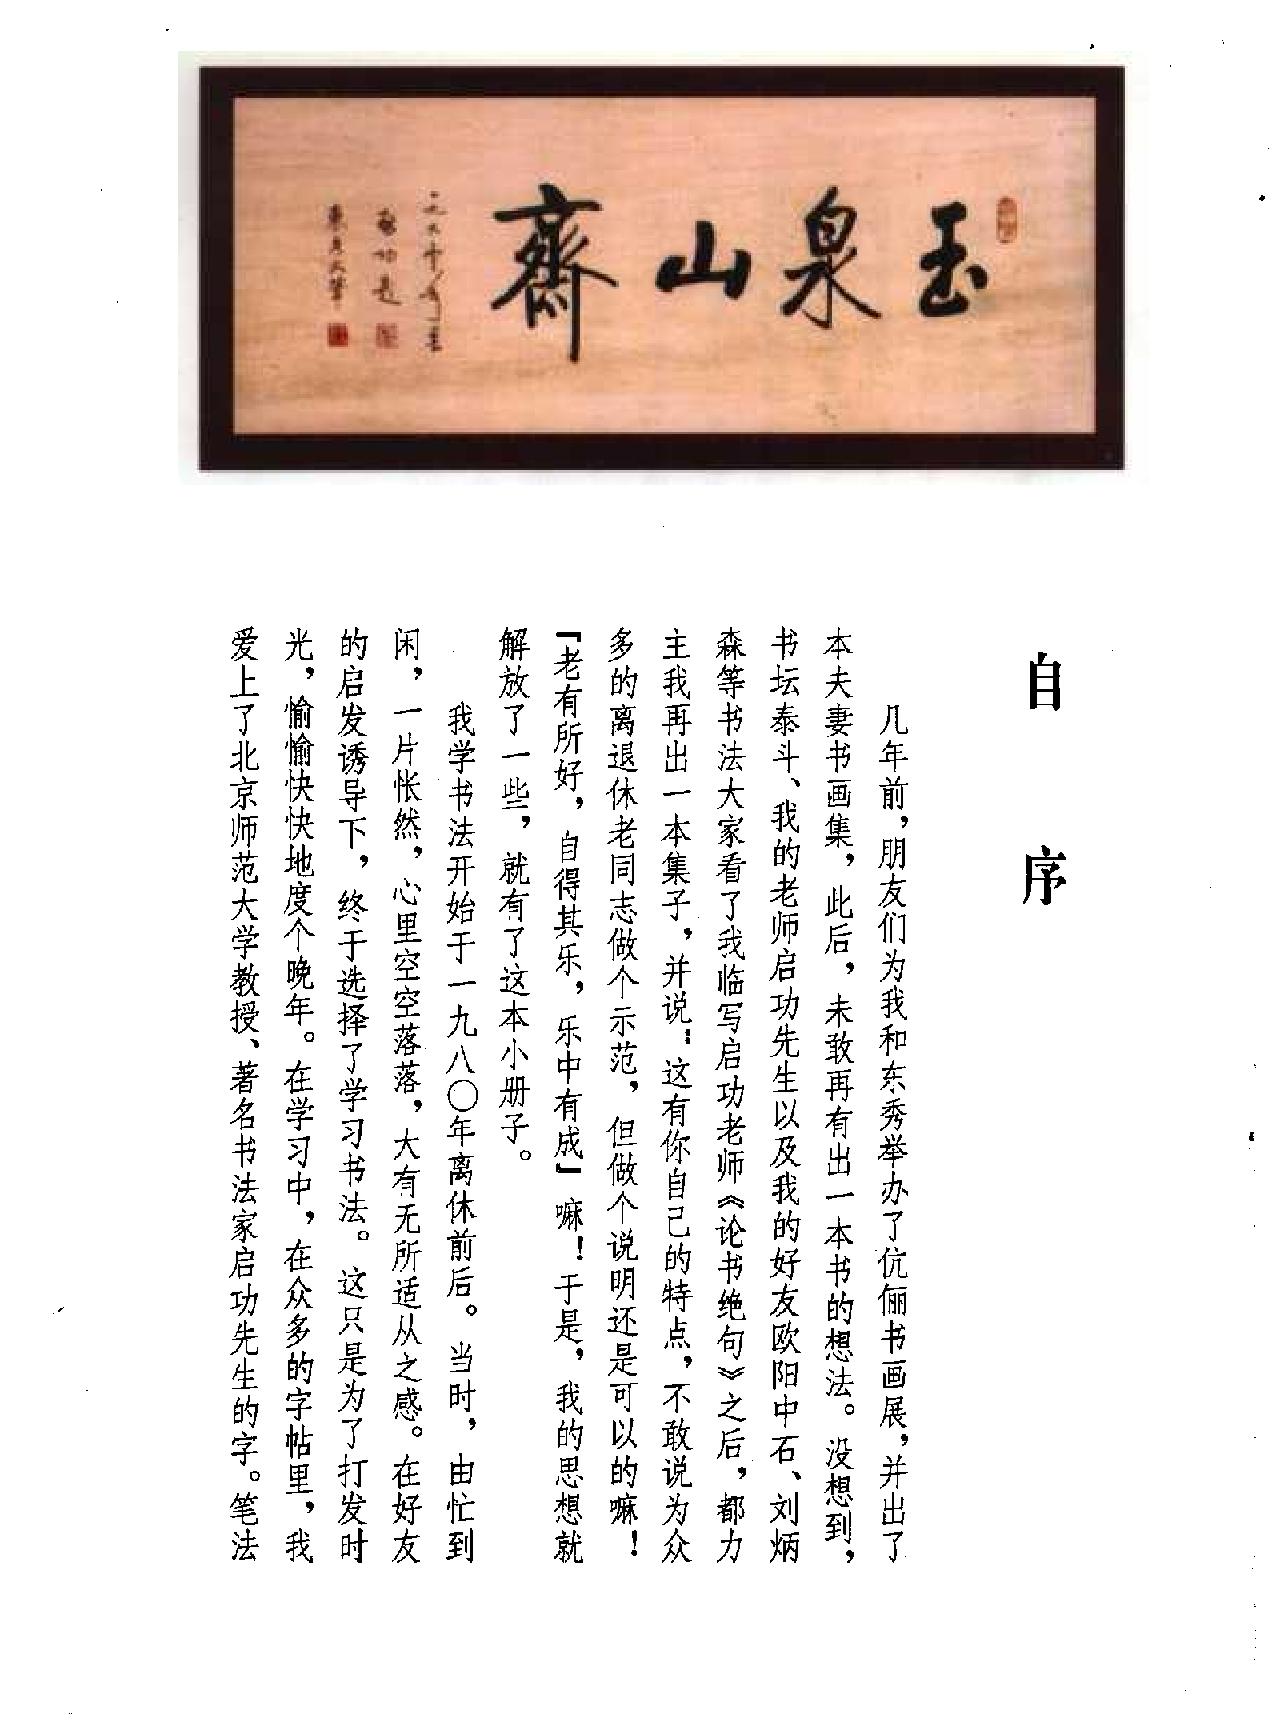 玉泉山斋
启功题
自序
几年前，朋友们为我和东秀举办了伉俪书画展，并出了
本夫妻书画集，此后，未敢再有出一本书的想法。没想到，
书坛泰斗、我的老师启功先生以及我的好友欧阳中石、刘炳
森等书法大家看了我临写启功老师《论书绝句》之后，都力
主我再出一本集子，并说：这有你自己的特点，不敢说为众
多的离退休老同志做个示范，但做个说明还是可以的嘛！
「老有所好，自得其乐，乐中有成」嘛！于是，我的思想就
解放了一些，就有了这本小册子。
我学书法开始于一九八〇年离休前后。当时，由忙到
闲，一片怅然，心里空空落落，大有无所适从之感。在好友
的启发诱导下，终于选择了学习书法。这只是为了打发时
光，愉愉快快地度个晚年。在学习中，在众多的字帖里，我
爱上了北京师范大学教授、著名书法家启功先生的字。笔法